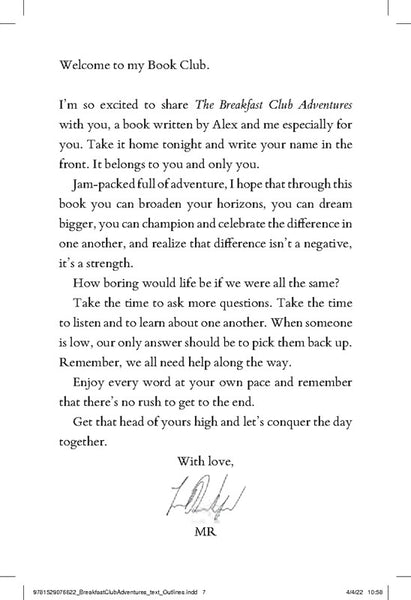 Welcome to my Book Club.
I'm so excited to share The Breakfast Club Adventures
with you, a book written by Alex and me especially for
you. Take it home tonight and write your name in the
front. It belongs to you and only you.
Jam-packed full of adventure, I hope that through this
book you can broaden your horizons, you can dream
bigger, you can champion and celebrate the difference in
one another, and realize that difference isn't a negative,
it's a strength.
How boring would life be if we were all the same?
Take the time to ask more questions. Take the time
to listen and to learn about one another. When someone
is low, our only answer should be to pick them back up.
Remember, we all need help along the way.
Enjoy every word at your own pace and remember
that there's no rush to get to the end.
Get that head of yours high and let's conquer the day
together.
With love,
MR
9781529076622_BreakfastClubAdventures_text_Outlines.indd 7
4/4/22 10:58